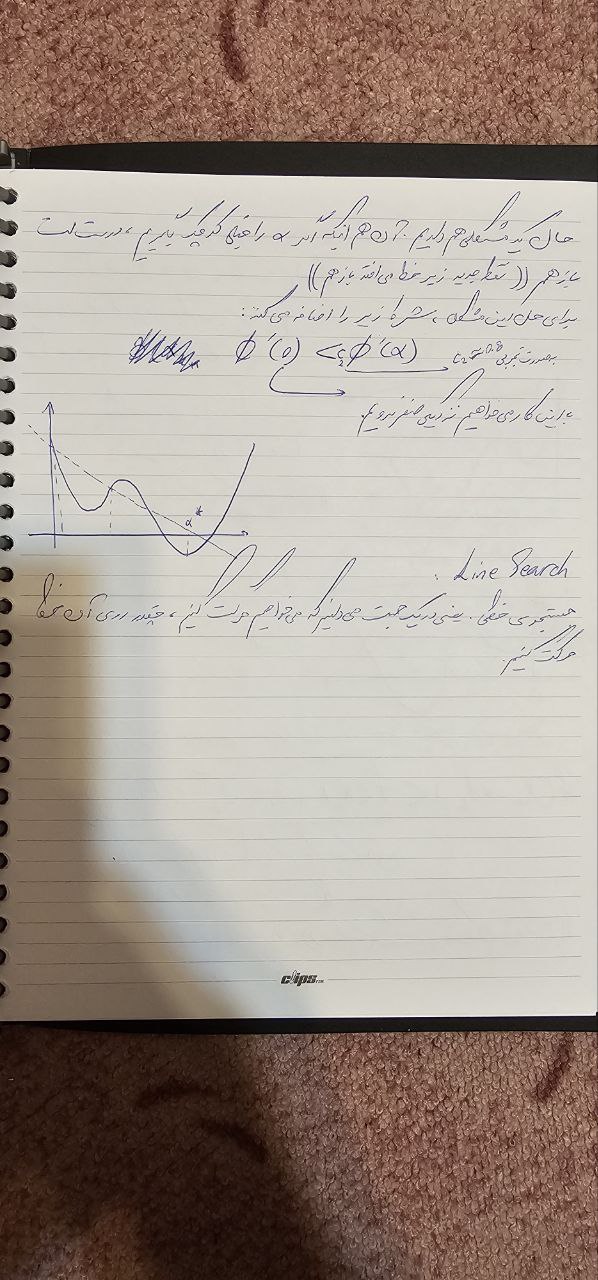 حال یک مشکلی هم داریم. آن هم اینکه اگر α را خیلی کوچک بگیریم، درست است
باز هم ((نقطه جدید زیر خط می افتد باز هم))
برای حل این مشکل، شرط زیر را اضافه می کند:
ϕ'(0) < c₂ϕ'(α) بصورت تجربی c₂ = 0.8
با این کار می خواهیم نزدیکی صفر نرویم.
α*
Line Search:
جستجوی خطی. یعنی در یک جهت می دانیم که می خواهیم حرکت کنیم، چقدر روی آن خط
حرکت کنیم.
clips